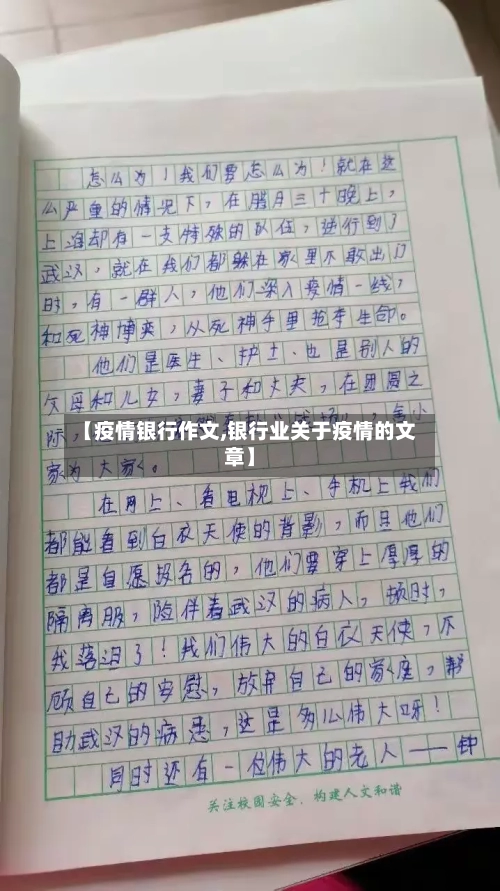 怎么办！我们要怎么办！就在这
么严重的情况下，在腊月三十晚上，
上海却有一支特殊的队伍，逆行到了
武汉，就在我们都躲在家里不敢出门
时，有一群人，他们深入疫情一线，
和死神博奕，从死神手里抢夺生命。
他们是医生、护士、也是别人的
父母和儿女，妻子和丈夫，在团圆之
际，
【疫情银行作文,银行业关于疫情的文
章】
舍小
家为大家。
在网上、看电视上、手机上我们
都能看到白衣天使的背影，而且他们
都是自愿报名的，他们要穿上厚厚的
隔离服，陪伴着武汉的病人，顿时，
我落泪了！我们伟大的白衣天使，不
顾自己的安慰，放弃自己的家庭，帮
助武汉的病患，这是多么伟大呀！
同时还有一位伟大的老人——钟
关注校园安全，构建人文和谐